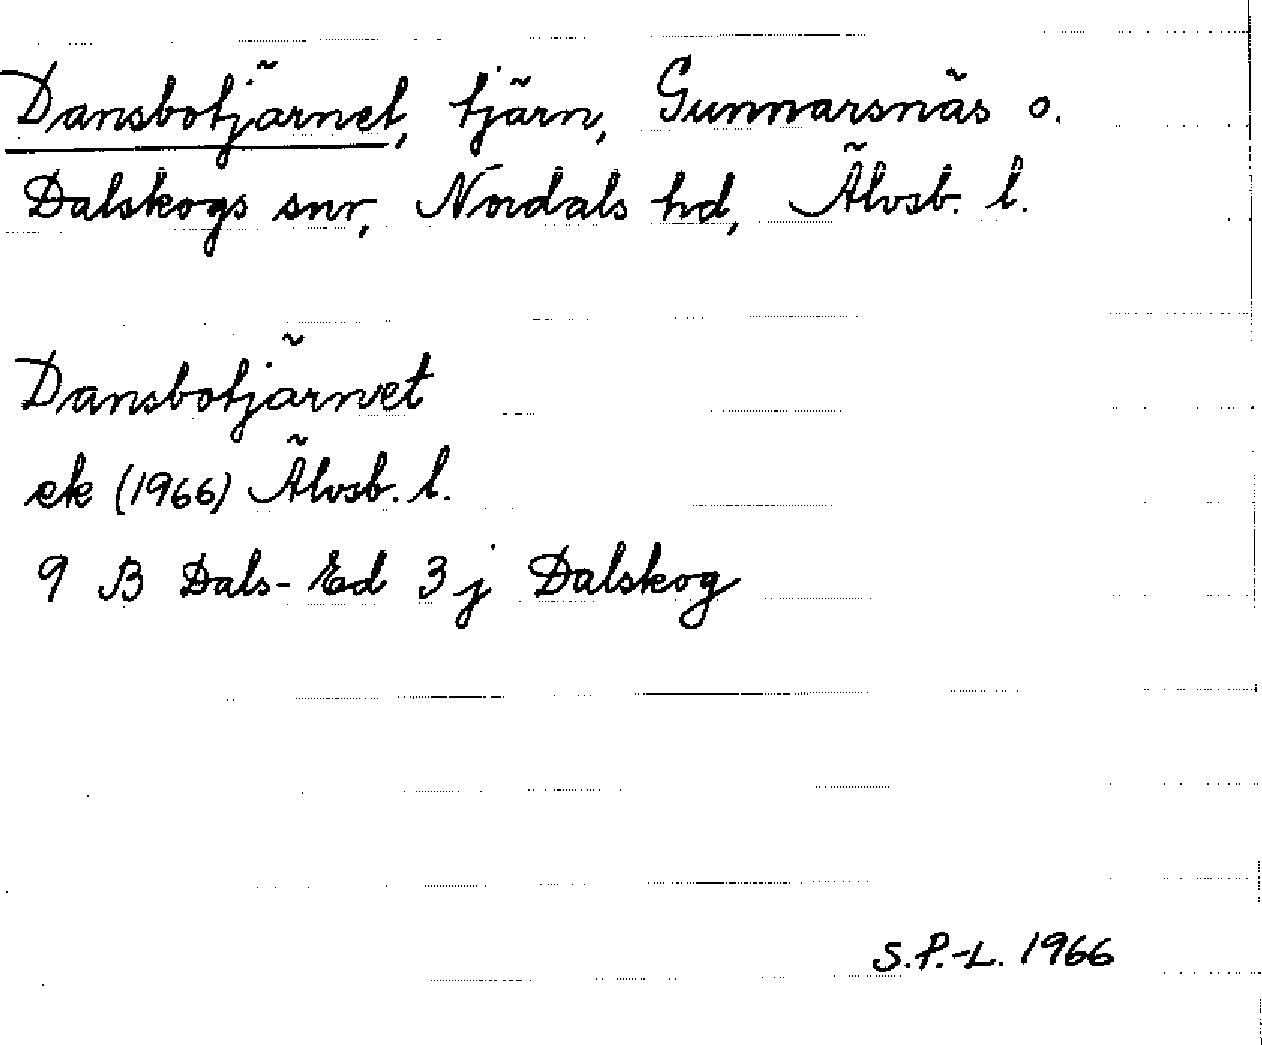 Dansbotjärnet, tjärn, Gunnarsnäs o.
Dalskogs snr, Nordals hd, Älvsb. l.
Dansbotjärnet
ek (1966) Älvsb. l.
9 B Dals-Ed 3j Dalskog
S.P.-L. 1966